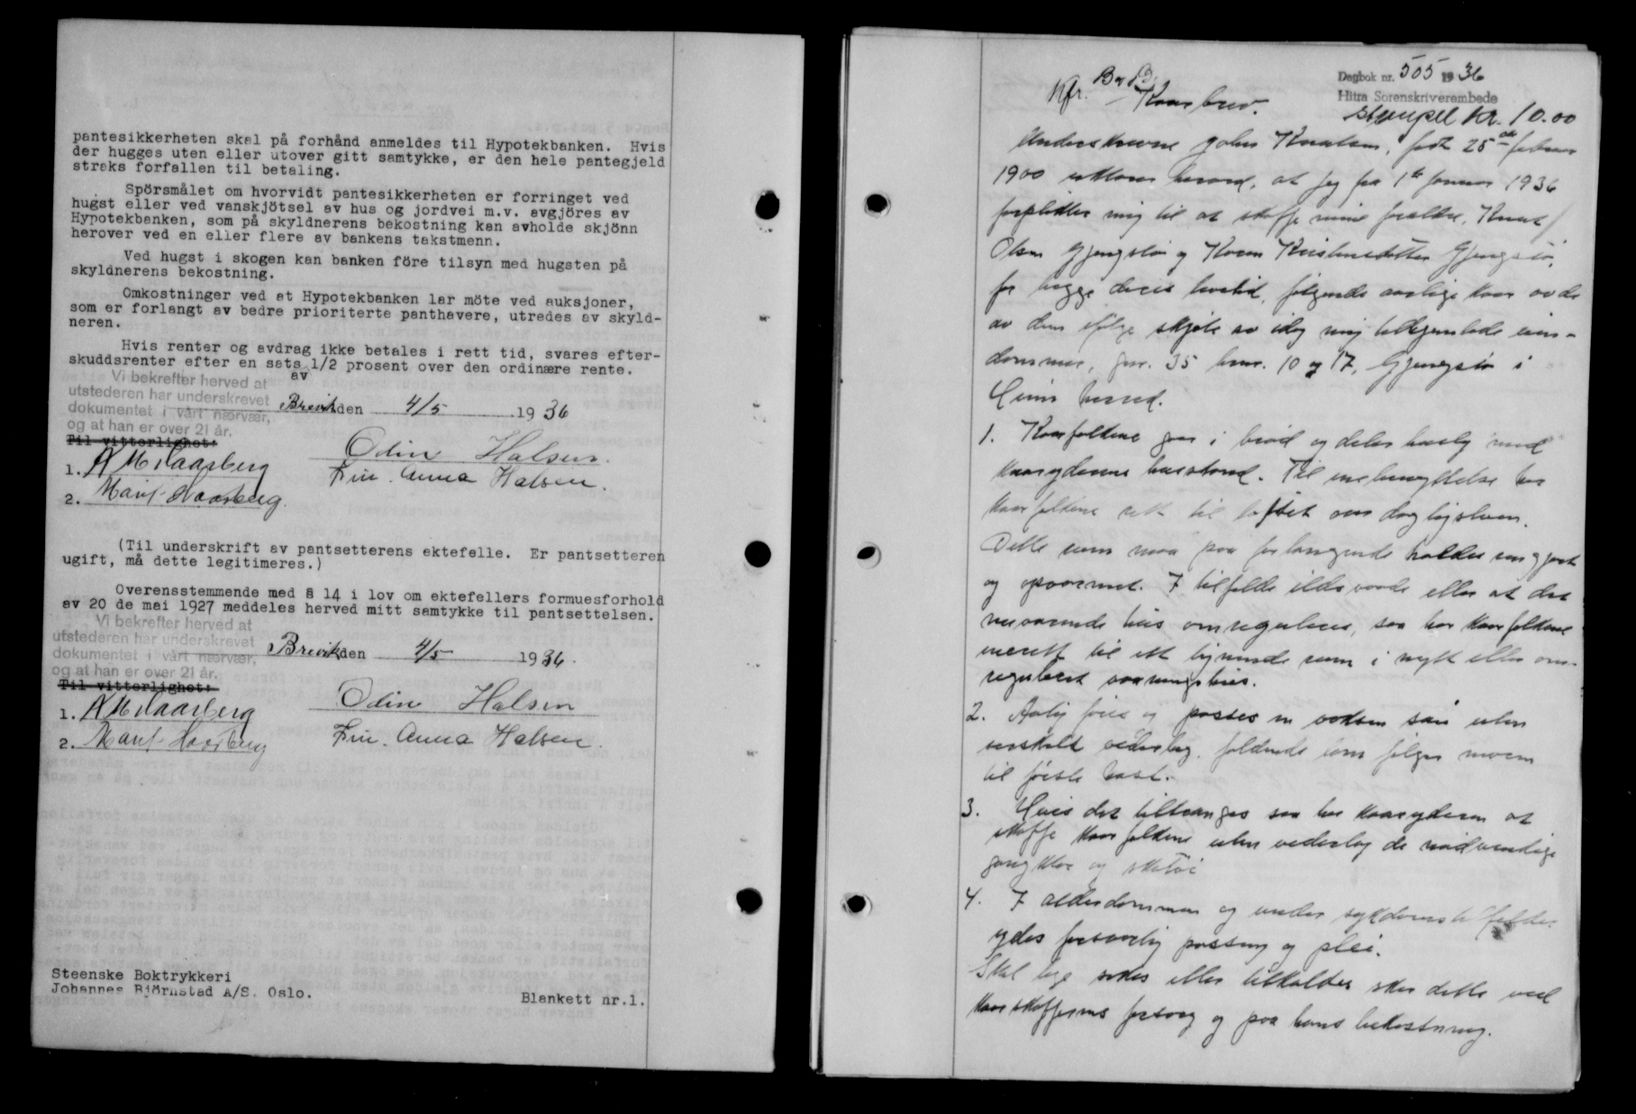 pantesikkerheten skal på forhånd anmeldes til Hypotekbanken. Hvis
der hugges uten eller utover gitt samtykke, er den hele pantegjeld
straks forfallen til betaling.
Spörsmålet om hvorvidt pantesikkerheten er forringet ved
hugst eller ved vanskjötsel av hus og jordvei m.v. avgjöres av
Hypotekbanken, som på skyldnerens bekostning kan avholde skjönn
herover ved en eller flere av bankens takstmenn.
Ved hugst i skogen kan banken före tilsyn med hugsten på
skyldnerens bekostning.
Omkostninger ved at Hypotekbanken lar möte ved auksjoner,
som er forlangt av bedre prioriterte panthavere, utredes av skyld-
neren.
Hvis renter og avdrag ikke betales i rett tid, svares efter-
skuddsrenter efter en sats 1/2 prosent over den ordinære rente.
av
Vi bekrefter herved at
utstederen har underskrevet
dokumentet i vårt nærvær,
og at han er over 21 år.
Brevik den 4/5 1936
Til vitterlighet:
Odin Halsen.
1. A M Haarberg
Fru. Anna Halsen.
2. Marit Haarberg.
(Til underskrift av pantsetterens ektefelle. Er pantsetteren
ugift, må dette legitimeres.)
Overensstemmende med § 14 i lov om ektefellers formuesforhold
av 20 de mai 1927 meddeles herved mitt samtykke til pantsettelsen.
Vi bekrefter herved at
utstederen har underskrevet
dokumentet i vårt nærvær,
og at han er over 21 år.
Brevik den 4/5 1936.
Til vitterlighet:
Odin Halsen
1. A M Haarberg
Fru. Anna Halsen.
2. Marit Haarberg
Steenske Boktrykkeri
Johannes Björnstad A/S. Oslo.
Blankett nr.1.
Dagbok nr. 505 1936
Hitra Sorenskriverembede
stempel kr. 10.00
Kaarbrev.
Underskrevne Johan Knutsen, født 25de februar
1900 erklærer herved, at jeg fra 1ste januar 1936
forplikter mig til at skaffe mine forældre, Knut
Olsen Gjengstø og Karen Kristensdatter Gjengstø,
for begge deres levetid, følgende aarlige kaar av de
av dem ifølge skjøte av idag mig tilhjemlede eien-
domme, gnr. 35 bnr. 10 og 17, Gjengstø i
Heim herred.
1. Kaarfolkene gaar i brød og deler husly med
kaaryderens husstand. Til enebenyttelse har
kaarfolkene rett til loftet over dagligstuen.
Dette rum maa paa forlangende holdes rengjort
og opvarmet. I tilfelde ildsvaade eller at det
nuværende hus omreguleres, saa har kaarfolkene
uterett til ett lignende rum i nytt eller om-
regulert vaaningshus.
2. Aarlig fores og passes en voksen sau uten
særskilt vederlag, faldende lam følger moren
til første høst.
3. Hvis det tiltrænges saa har kaaryderen at
skaffe kaarfolkene uten vederlag de nødvendige
gangklær og skotøi
4. I alderdommen og under sykdomstilfelder
ydes forsvarlig pasning og pleie.
Skal læge søkes eller tilkaldes sker dette ved
kaarskafferens forsorg og paa hans bekostning.